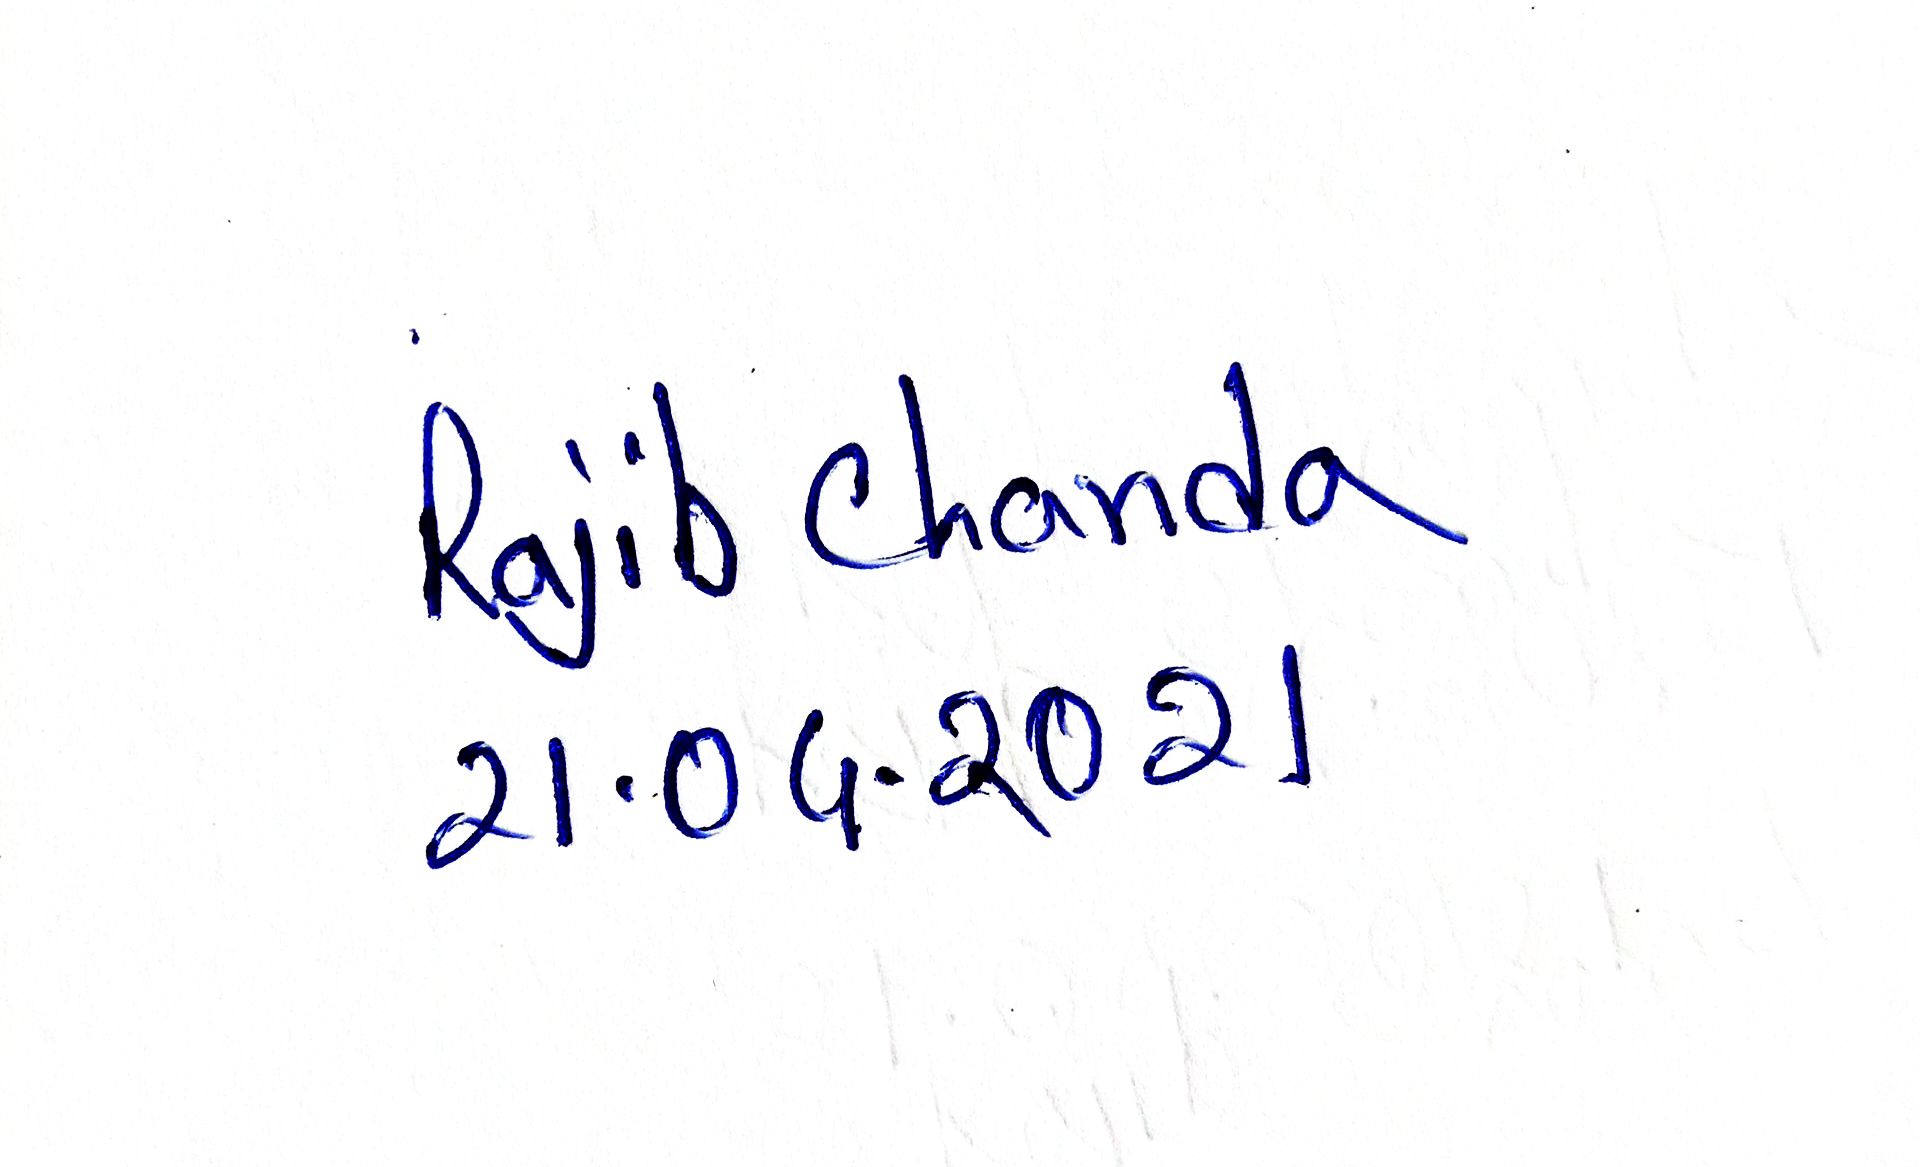 Rajib Chanda
21.04.2021